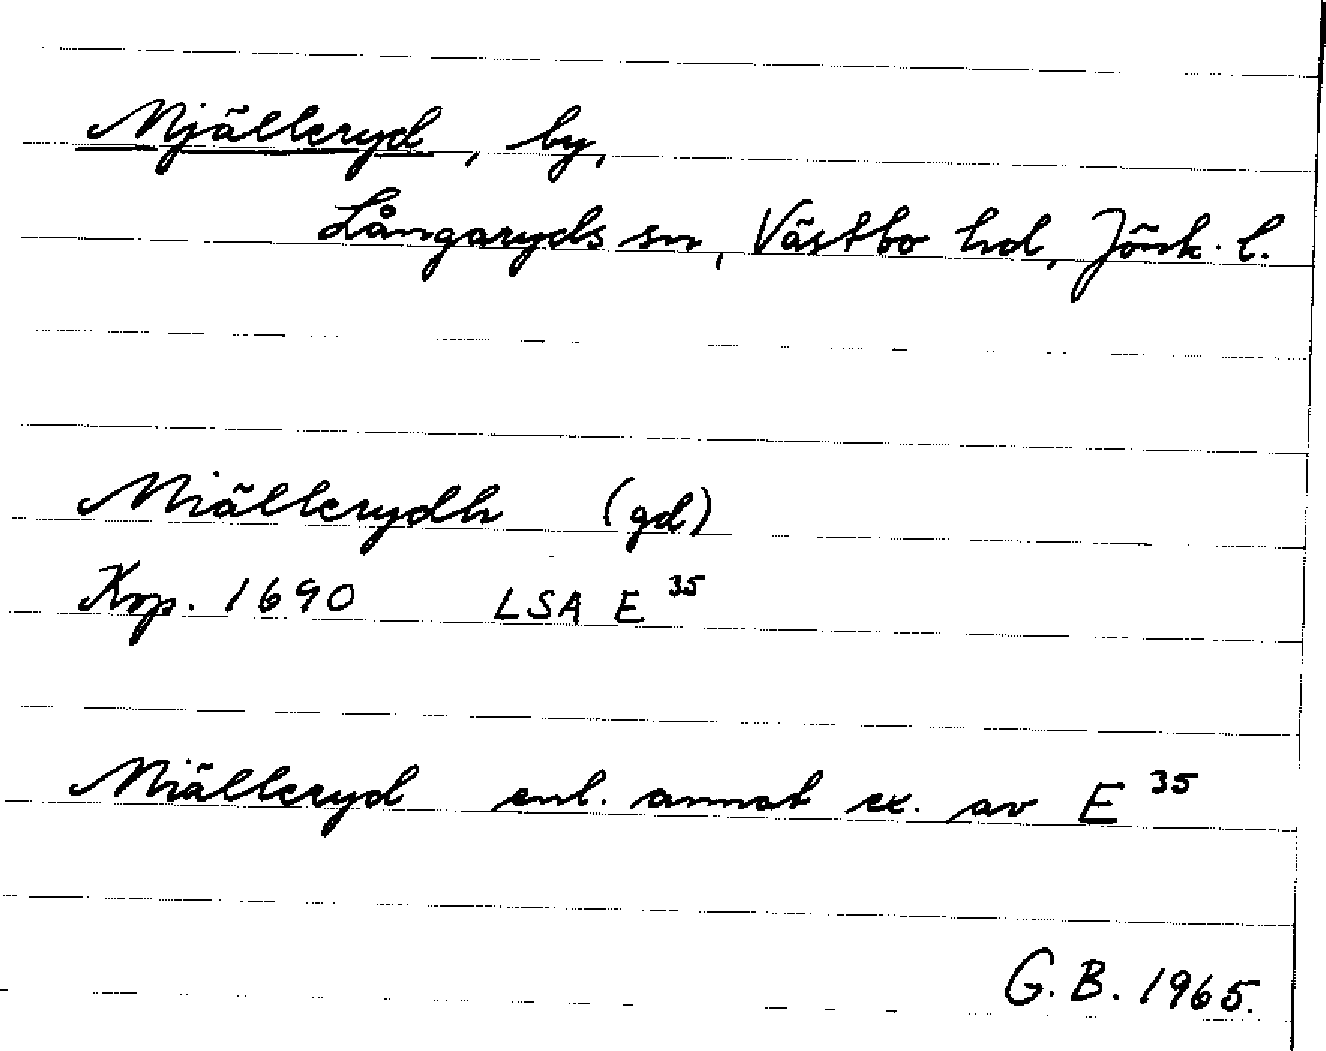 Mjälleryd, by,
Långaryds sn, Västbo hd, Jönk. l.
Miällerydh (gd)
Kop. 1690 LSA E 35
Miälleryd enl. annat ex. av E 35
G.B. 1965.